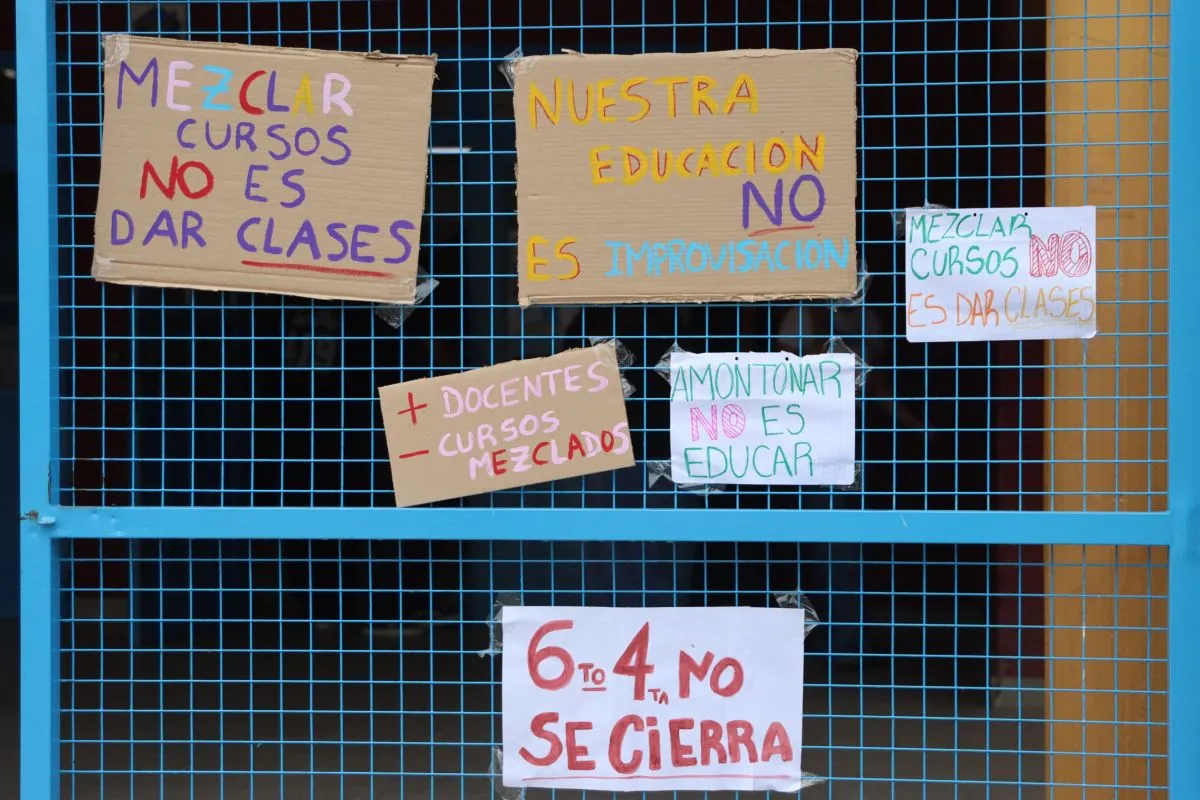 MEZCLAR
CURSOS
NO ES
DAR CLASES
NUESTRA
EDUCACIÓN
NO
ES IMPROVISACIÓN
MEZCLAR
CURSOS NO
ES DAR CLASES
+ DOCENTES
- CURSOS
MEZCLADOS
AMONTONAR
NO ES
EDUCAR
6TO 4TA NO
SE CIERRA